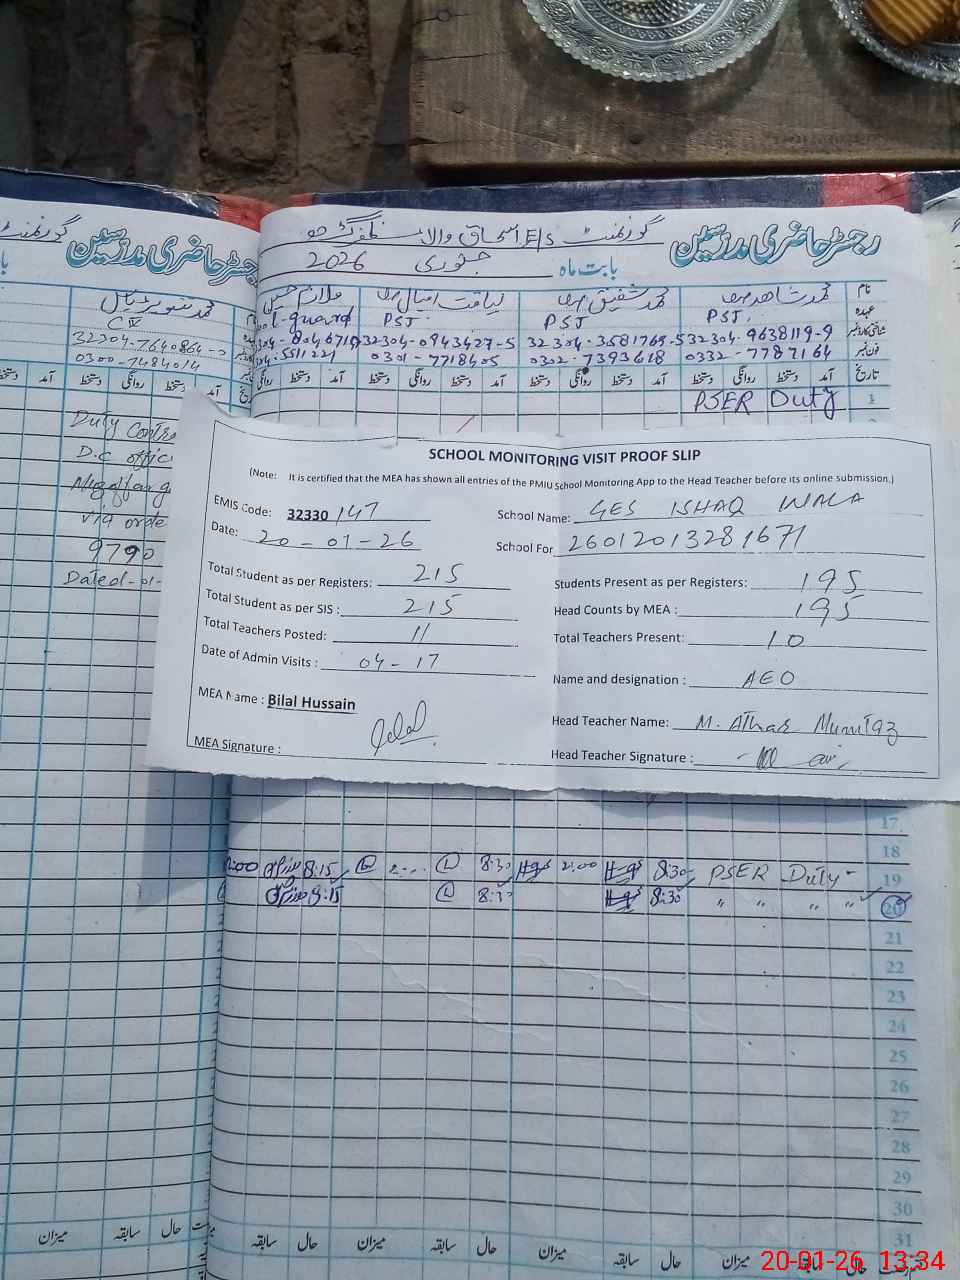 رجسٹر حاضری مدرسین
گورنمنٹ E/S اسحاق والا
بابت ماہ جنوری 2026
نام
محمد شاہد
محمد شفیق
لیاقت
ملازم حسین
عہدہ
PST.
PST
PST.
guard
شناختی کارڈ نمبر
32304-9638119-9
32304-3581769-5
32304-0943427-5
فون نمبر
0332-7787164
0302-7393618
0301-7718405
5511221
تاریخ
آمد دستخط روانگی دستخط
آمد دستخط روانگی دستخط
آمد دستخط روانگی دستخط
آمد دستخط روانگی
1 PSER Duty
رجسٹر حاضری مدرسین
گورنمنٹ
محمد تنویر
32304-7640864-
0300-7484014
آمد دستخط روانگی دستخط
Duty Contro
D.C offic
Muzaffar g
via orde
9790
Dated-01-
SCHOOL MONITORING VISIT PROOF SLIP
(Note: It is certified that the MEA has shown all entries of the PMIU School Monitoring App to the Head Teacher before its online submission.)
EMIS Code: 32330147
School Name: GES ISHAQ WALA
Date: 20-01-26
School For 26012013281671
Total Student as per Registers: 215
Students Present as per Registers: 195
Total Student as per SIS : 215
Head Counts by MEA : 195
Total Teachers Posted: 11
Total Teachers Present: 10
Date of Admin Visits : 04-17
Name and designation : AEO
MEA Name : Bilal Hussain
Head Teacher Name: M. Athar Mumtaz
MEA Signature :
Head Teacher Signature :
17
18
2:00 8:15 8:30 2:00 8:30 PSER Duty 19
8:15 8:30 8:30 " " " " 20
21
22
23
24
25
26
27
28
29
30
31
حال سابقہ میزان حال سابقہ میزان حال سابقہ
حال سابقہ میزان
20-01-26 13:34